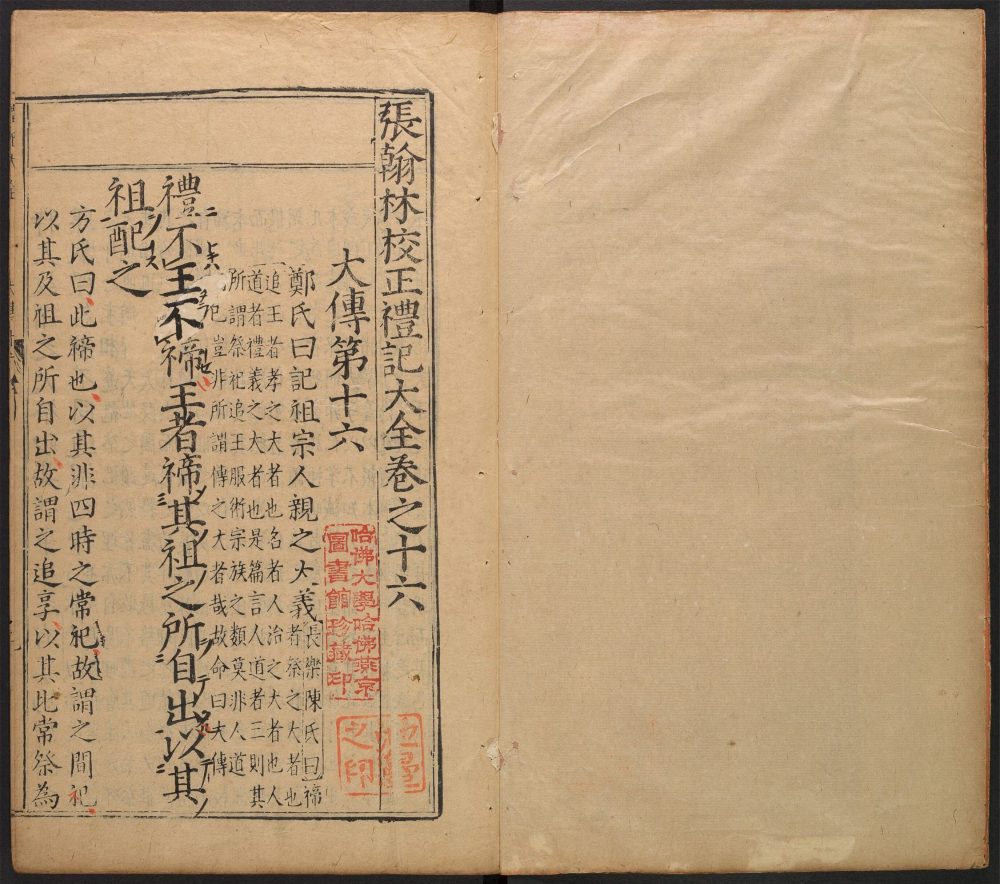 張翰林校正禮記大全卷之十六
大傳第十六
鄭氏曰記祖宗人親之大義
長樂陳氏曰禘
者祭之大者也
追王者孝之大者也名者人治之大者也人
道者禮義之大者也是篇言人道者三則其
所謂祭祀追王服術宗族之類莫非人道
已豈非所謂傳之大者哉故命曰大傳
禮不王不禘王者禘其祖之所自出以其
祖配之
方氏曰此禘也以其非四時之常祀故謂之間祀
以其及祖之所自出故謂之追享以其比常祭為
哈佛大學哈佛燕京
圖書館珍藏印
之印